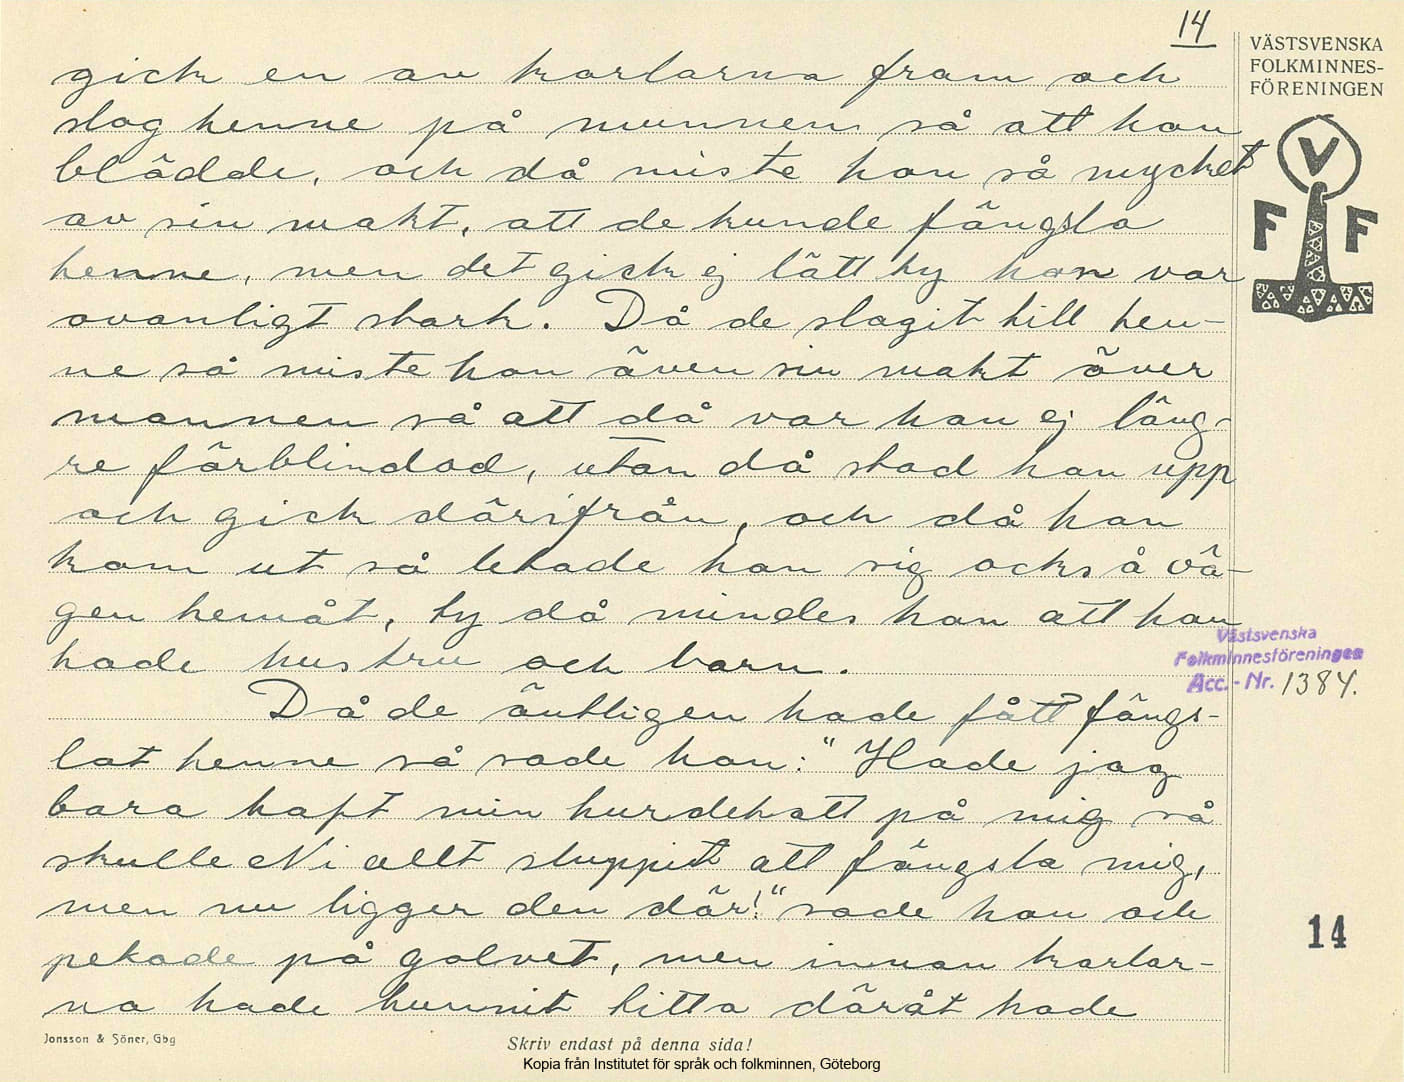 14
VÄSTSVENSKA
FOLKMINNES-
FÖRENINGEN
V
F F
gick en av karlarna fram och
slog henne på munnen så att hon
blödde, och då miste hon så mycket
av sin makt, att de kunde fängsla
henne, men det gick ej lätt ty hon var
ovanligt stark. Då de slagit till hen-
ne så miste hon även sin makt över
mannen så att då var han ej läng-
re förblindad, utan då stod han upp
och gick därifrån, och då han
kom ut så letade han sig också vä-
gen hemåt, ty då mindes han att han
hade hustru och barn.
Då de äntligen hade fått fängs-
lat henne så sade hon: "Hade jag
bara haft min hurdehatt på mig så
skulle Ni allt sluppit att fängsla mig,
men nu ligger den där!" sade hon och
pekade på golvet, men innan karlar-
na hade hunnit titta däråt hade
Västsvenska
Folkminnesföreningen
Acc. - Nr. 1384.
14
Jonsson & Söner, Gbg
Skriv endast på denna sida!
Kopia från Institutet för språk och folkminnen, Göteborg